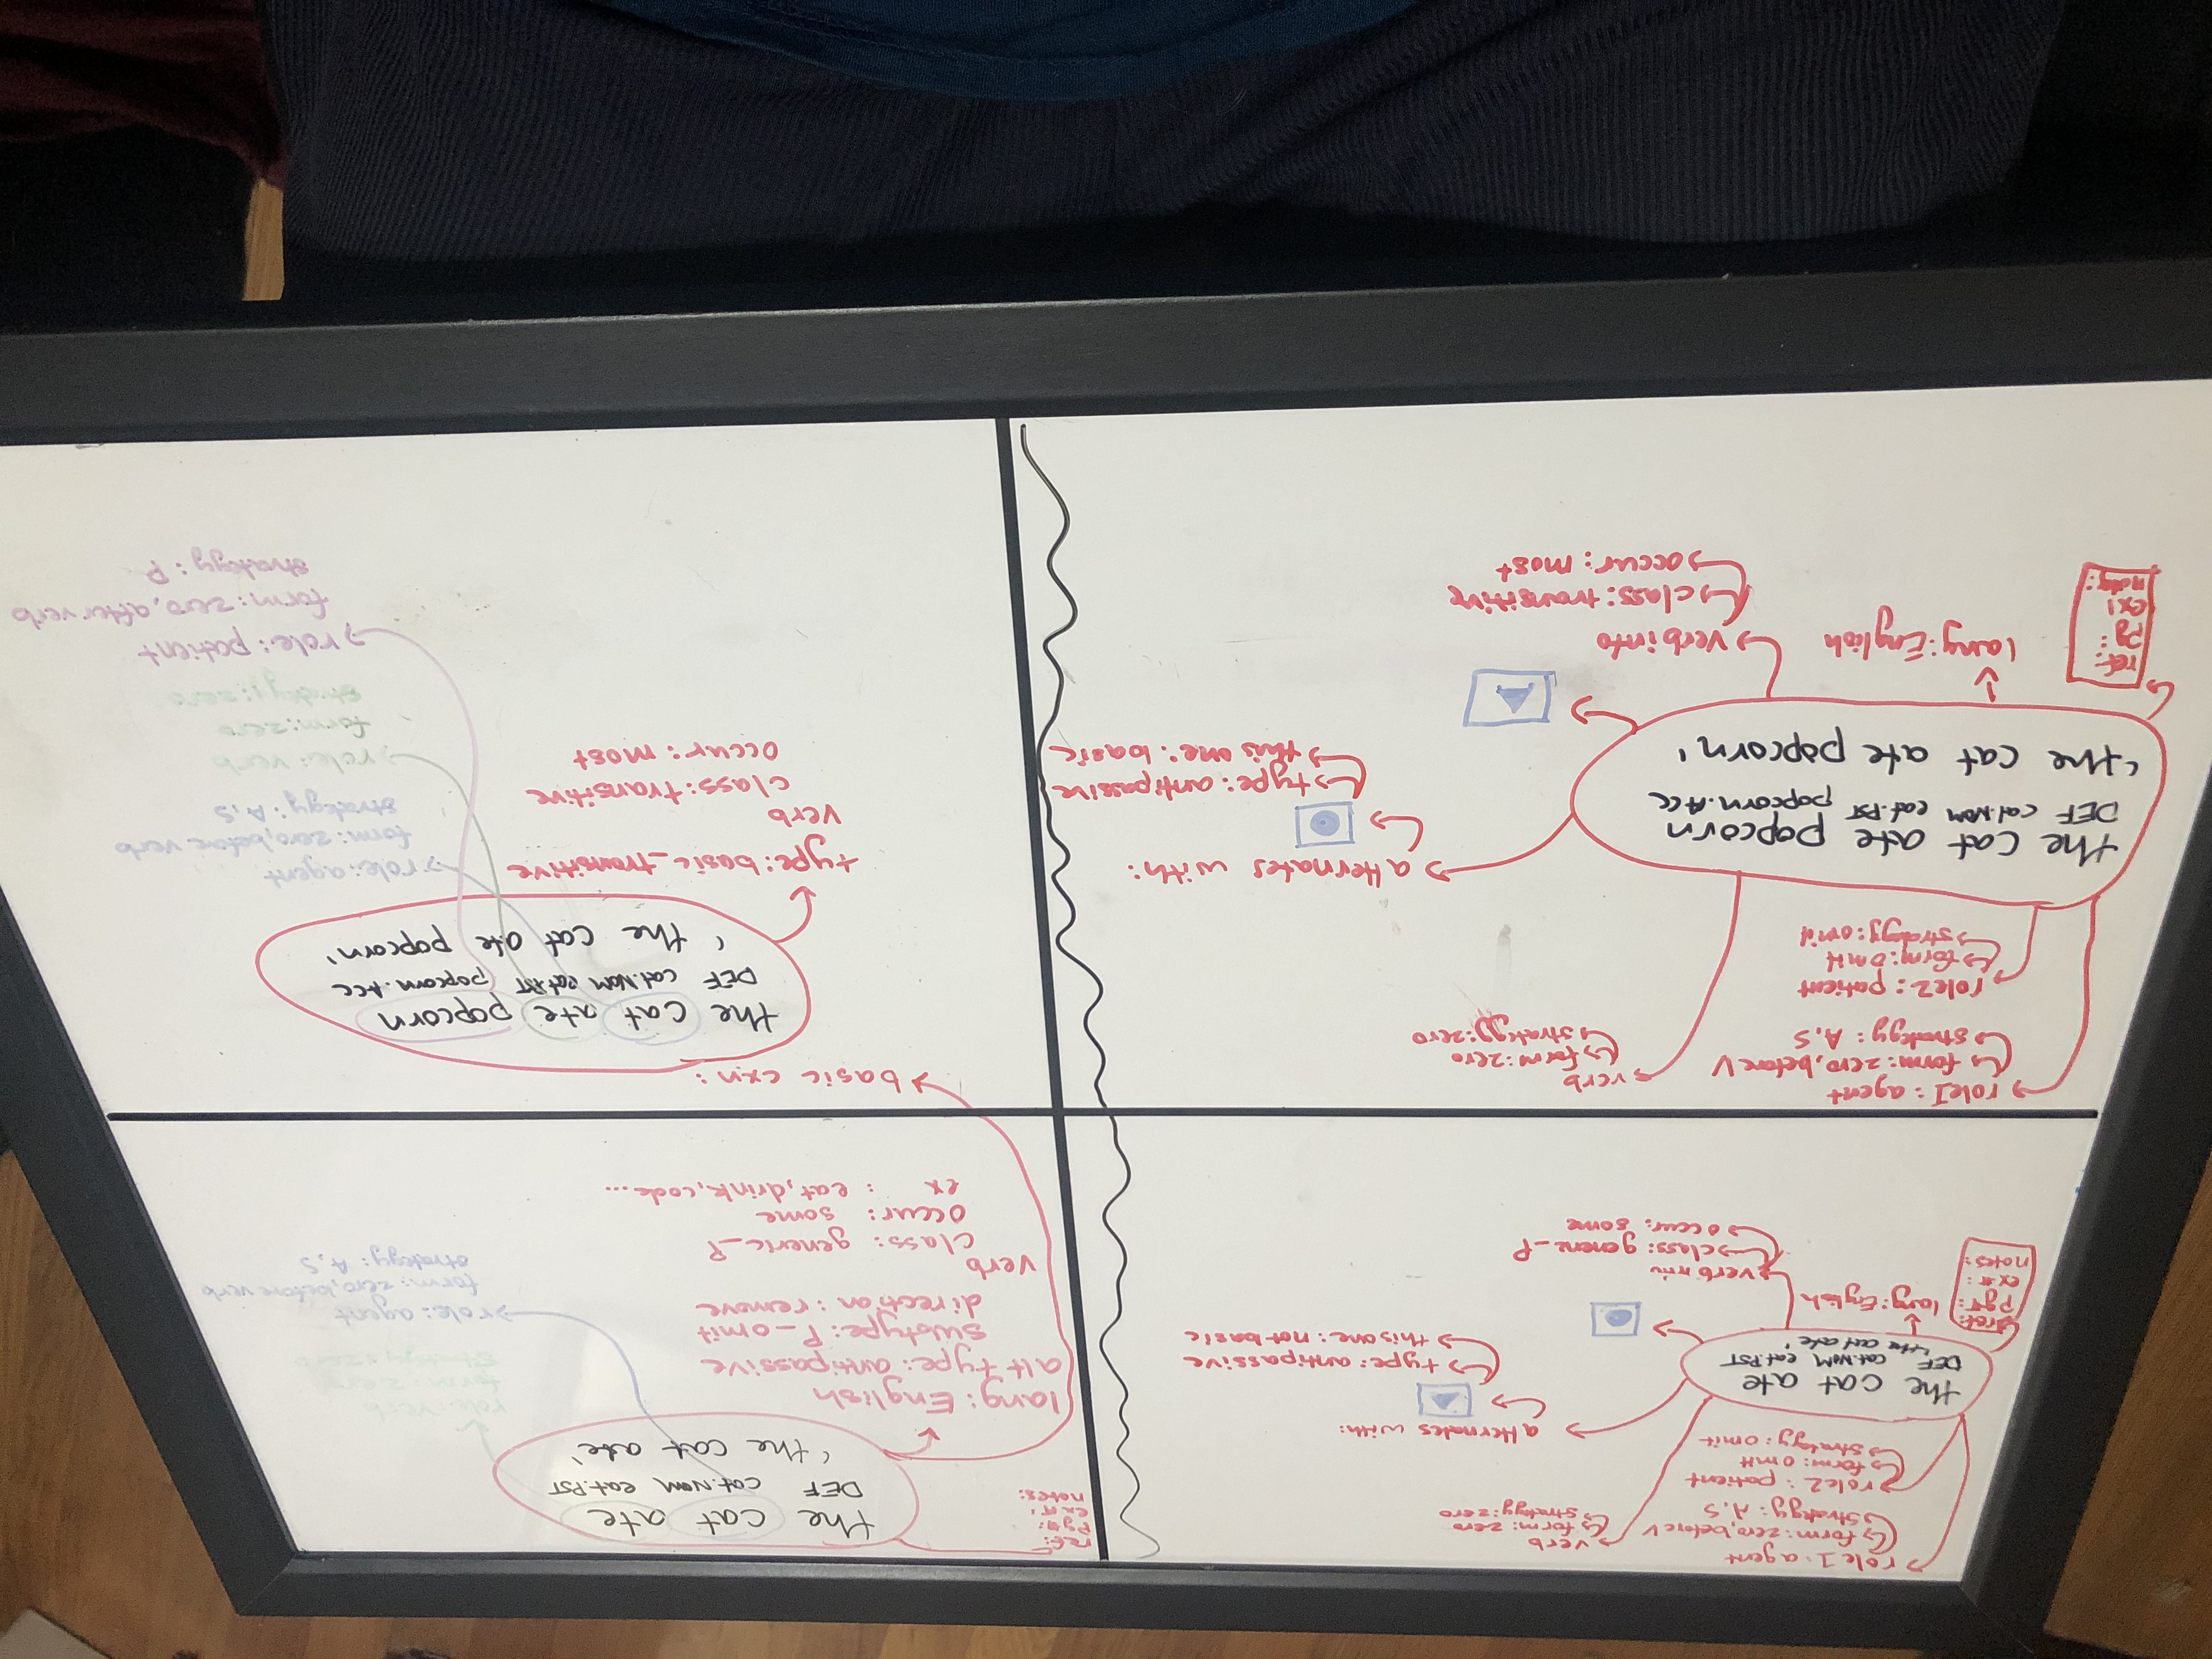 role 1: agent
form: zero, before V
strategy: A, S
role2: patient
form: omit
strategy: omit
verb
form: zero
strategy: zero
the cat ate
DEF cat.NOM eat.PST
'the cat ate'
alternates with:
type: antipassive
this one: not basic
ref:
pg#:
ex#:
notes:
lang: English
verb
class: generic_P
occur: some
ref:
pg#:
ex#:
notes:
the cat ate
DEF cat.NOM eat.PST
'the cat ate'
lang: English
alt type: antipassive
subtype: P_omit
direction: remove
verb
class: generic_P
occur: some
ex : eat, drink, code...
role: verb
form: zero
strategy: zero
role: agent
form: zero, before verb
strategy: A, S
role1: agent
form: zero, before V
strategy: A, S
role2: patient
form: omit
strategy: omit
verb
form: zero
strategy: zero
the cat ate popcorn
DEF cat.NOM eat.PST popcorn.ACC
'the cat ate popcorn'
alternates with:
type: antipassive
this one: basic
ref:
pg:
ex:
notes:
lang: English
verb info
class: transitive
occur: most
basic cxn:
the cat ate popcorn
DEF cat.NOM eat.PST popcorn.ACC
'the cat ate popcorn'
type: basic_transitive
verb
class: transitive
occur: most
role: agent
form: zero, before verb
strategy: A, S
role: verb
form: zero
strategy: zero
role: patient
form: zero, after verb
strategy: P